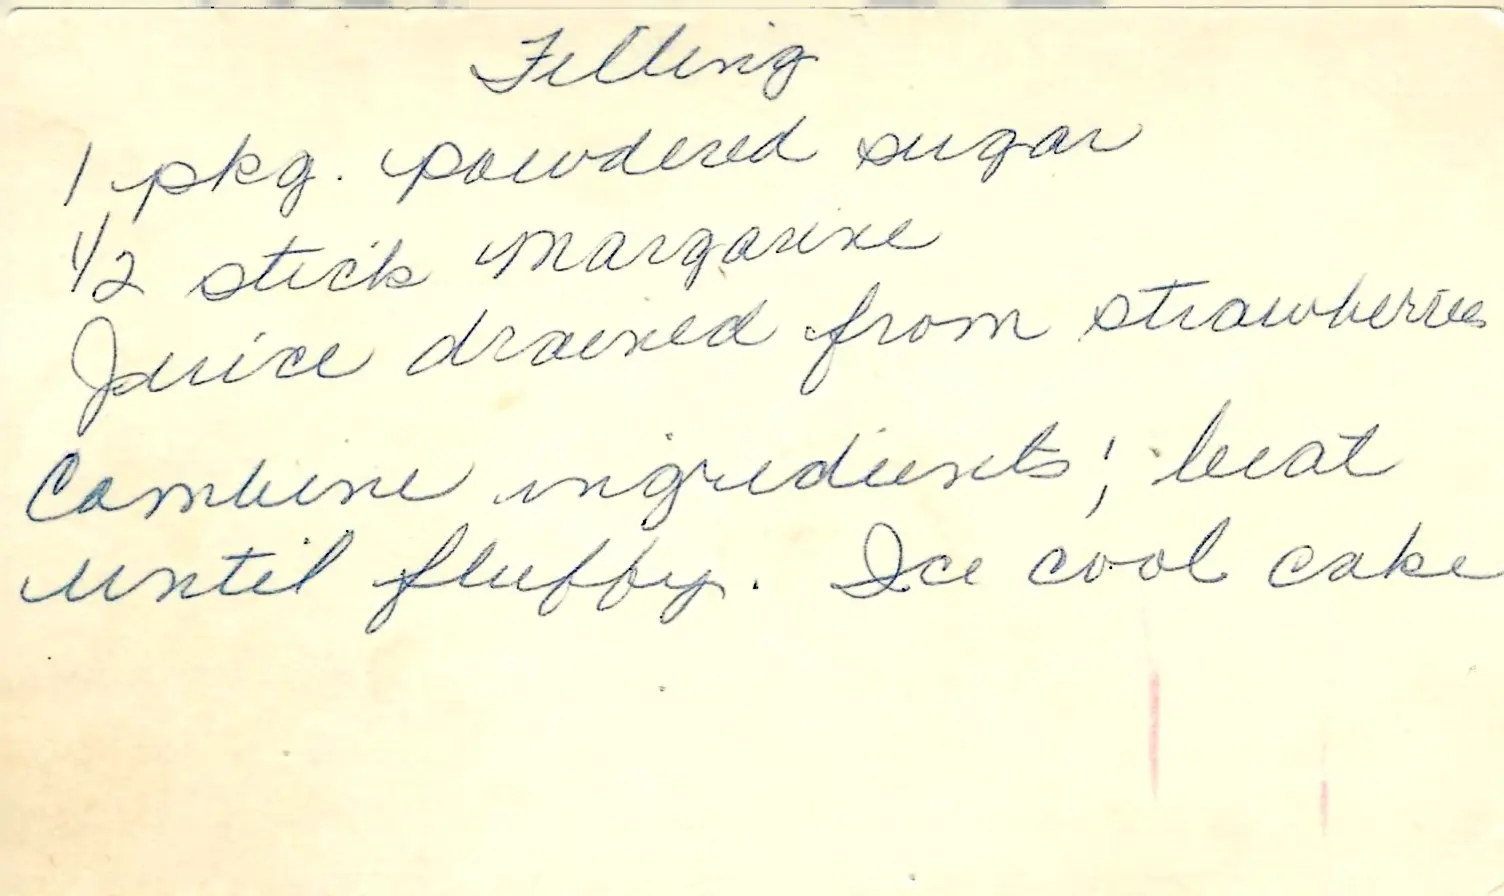 Filling
1 pkg. powdered sugar
1/2 stick margarine
Juice drained from strawberries
Combine ingredients; beat
until fluffy. Ice cool cake